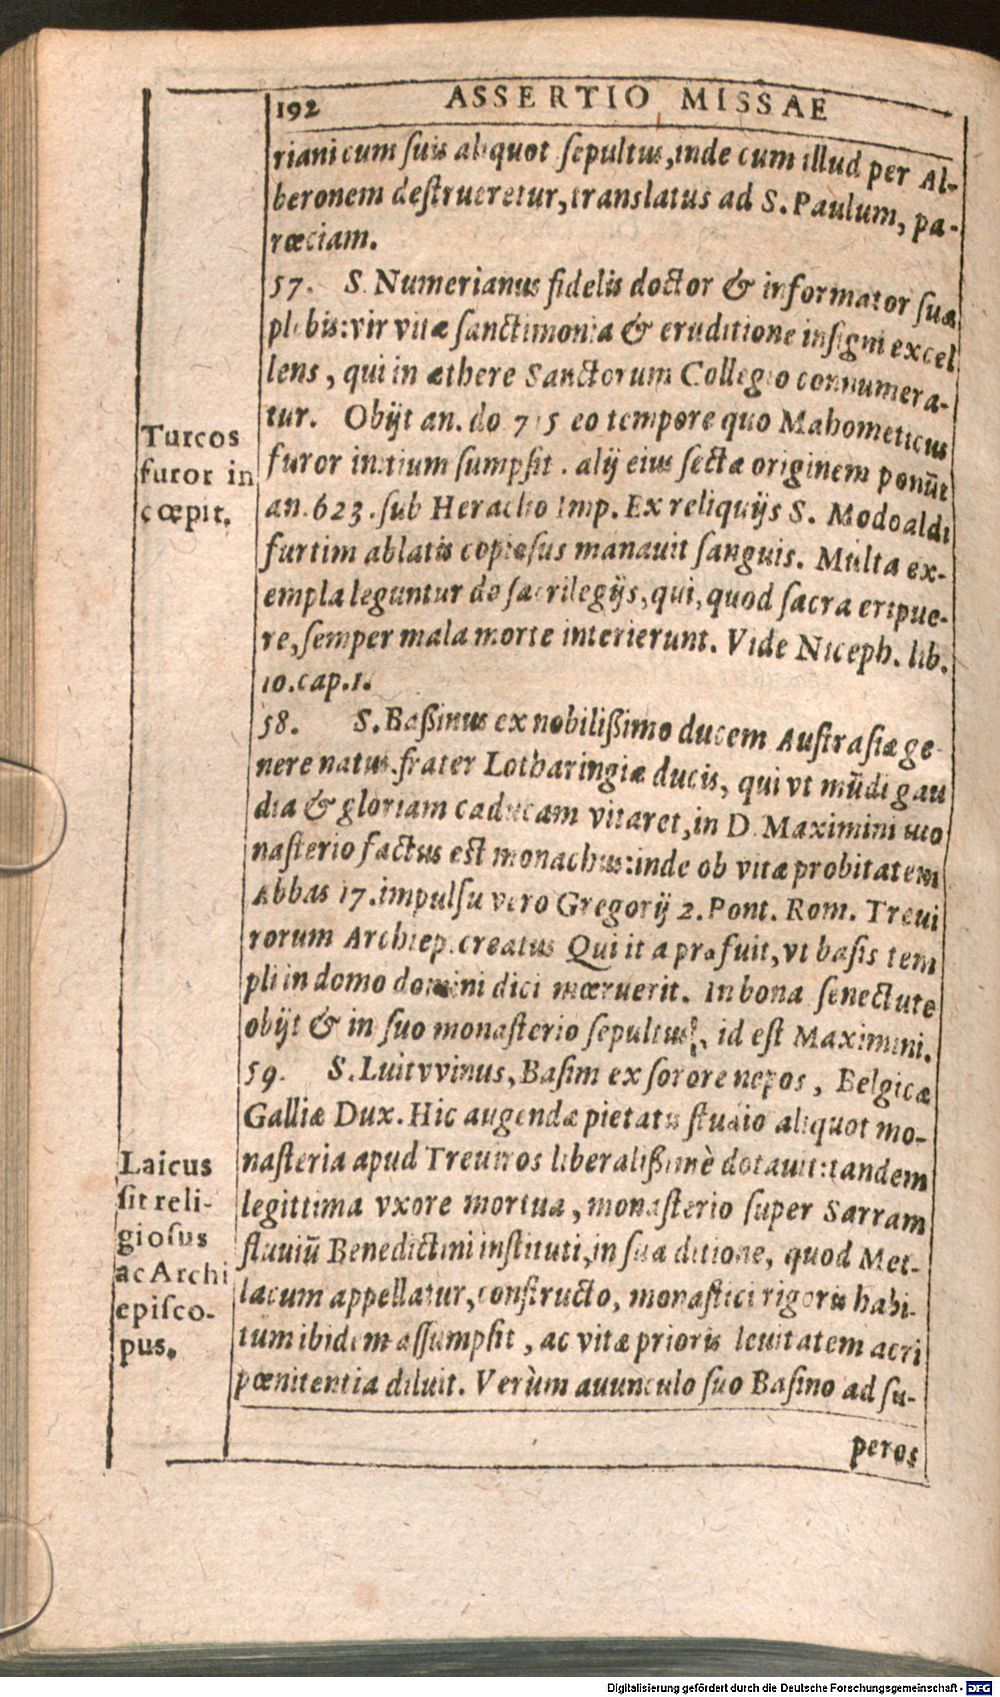 192 ASSERTIO MISSAE
riani cum suis aliquot sepultus, inde cum illud per Al-
beronem destrueretur, translatus ad S. Paulum, pa-
rœciam.
57. S. Numerianus fidelis doctor & informator suæ
plebis: vir vitæ sanctimonia & eruditione insigni excel
lens, qui in æthere Sanctorum Collegio connumera-
tur. Obijt an. do 715 eo tempore quo Mahometicus
furor initium sumpsit. alij eius sectæ originem ponūt
an. 623. sub Heraclio Imp. Ex reliquijs S. Modoaldi
furtim ablatis copiosus manauit sanguis. Multa ex-
empla leguntur de sacrilegijs, qui, quod sacra eripue-
re, semper mala morte interierunt. Vide Niceph. lib.
10. cap. 1.
Turcos
furor in
cœpit.
58. S. Baßinus ex nobilißimo ducem Austrasiæ ge-
nere natus. frater Lotharingiæ ducis, qui vt mūdi gau
dia & gloriam caducam vitaret, in D. Maximini mo
nasterio factus est monachus: inde ob vitæ probitatem
Abbas 17. impulsu vero Gregorij 2. Pont. Rom. Treui
rorum Archiep. creatus Qui ita præfuit, vt basis tem
pli in domo domini dici mœruerit. In bona senectute
obijt & in suo monasterio sepultus, id est Maximini.
59. S. Luitvvinus, Basim ex sorore nepos, Belgicæ
Galliæ Dux. Hic augendæ pietatis studio aliquot mo-
nasteria apud Treuiros liberalißimè dotauit: tandem
legittima vxore mortua, monasterio super Sarram
fluuiū Benedictini instituti, in sua ditione, quod Met-
lacum appellatur, constructo, monastici rigoris habi-
tum ibidem assumpsit, ac vitæ prioris leuitatem acri
pœnitentia diluit. Verùm auunculo suo Basino ad su-
Laicus
fit reli-
giosus
ac Archi
episco-
pus.
peros
Digitalisierung gefördert durch die Deutsche Forschungsgemeinschaft - DFG